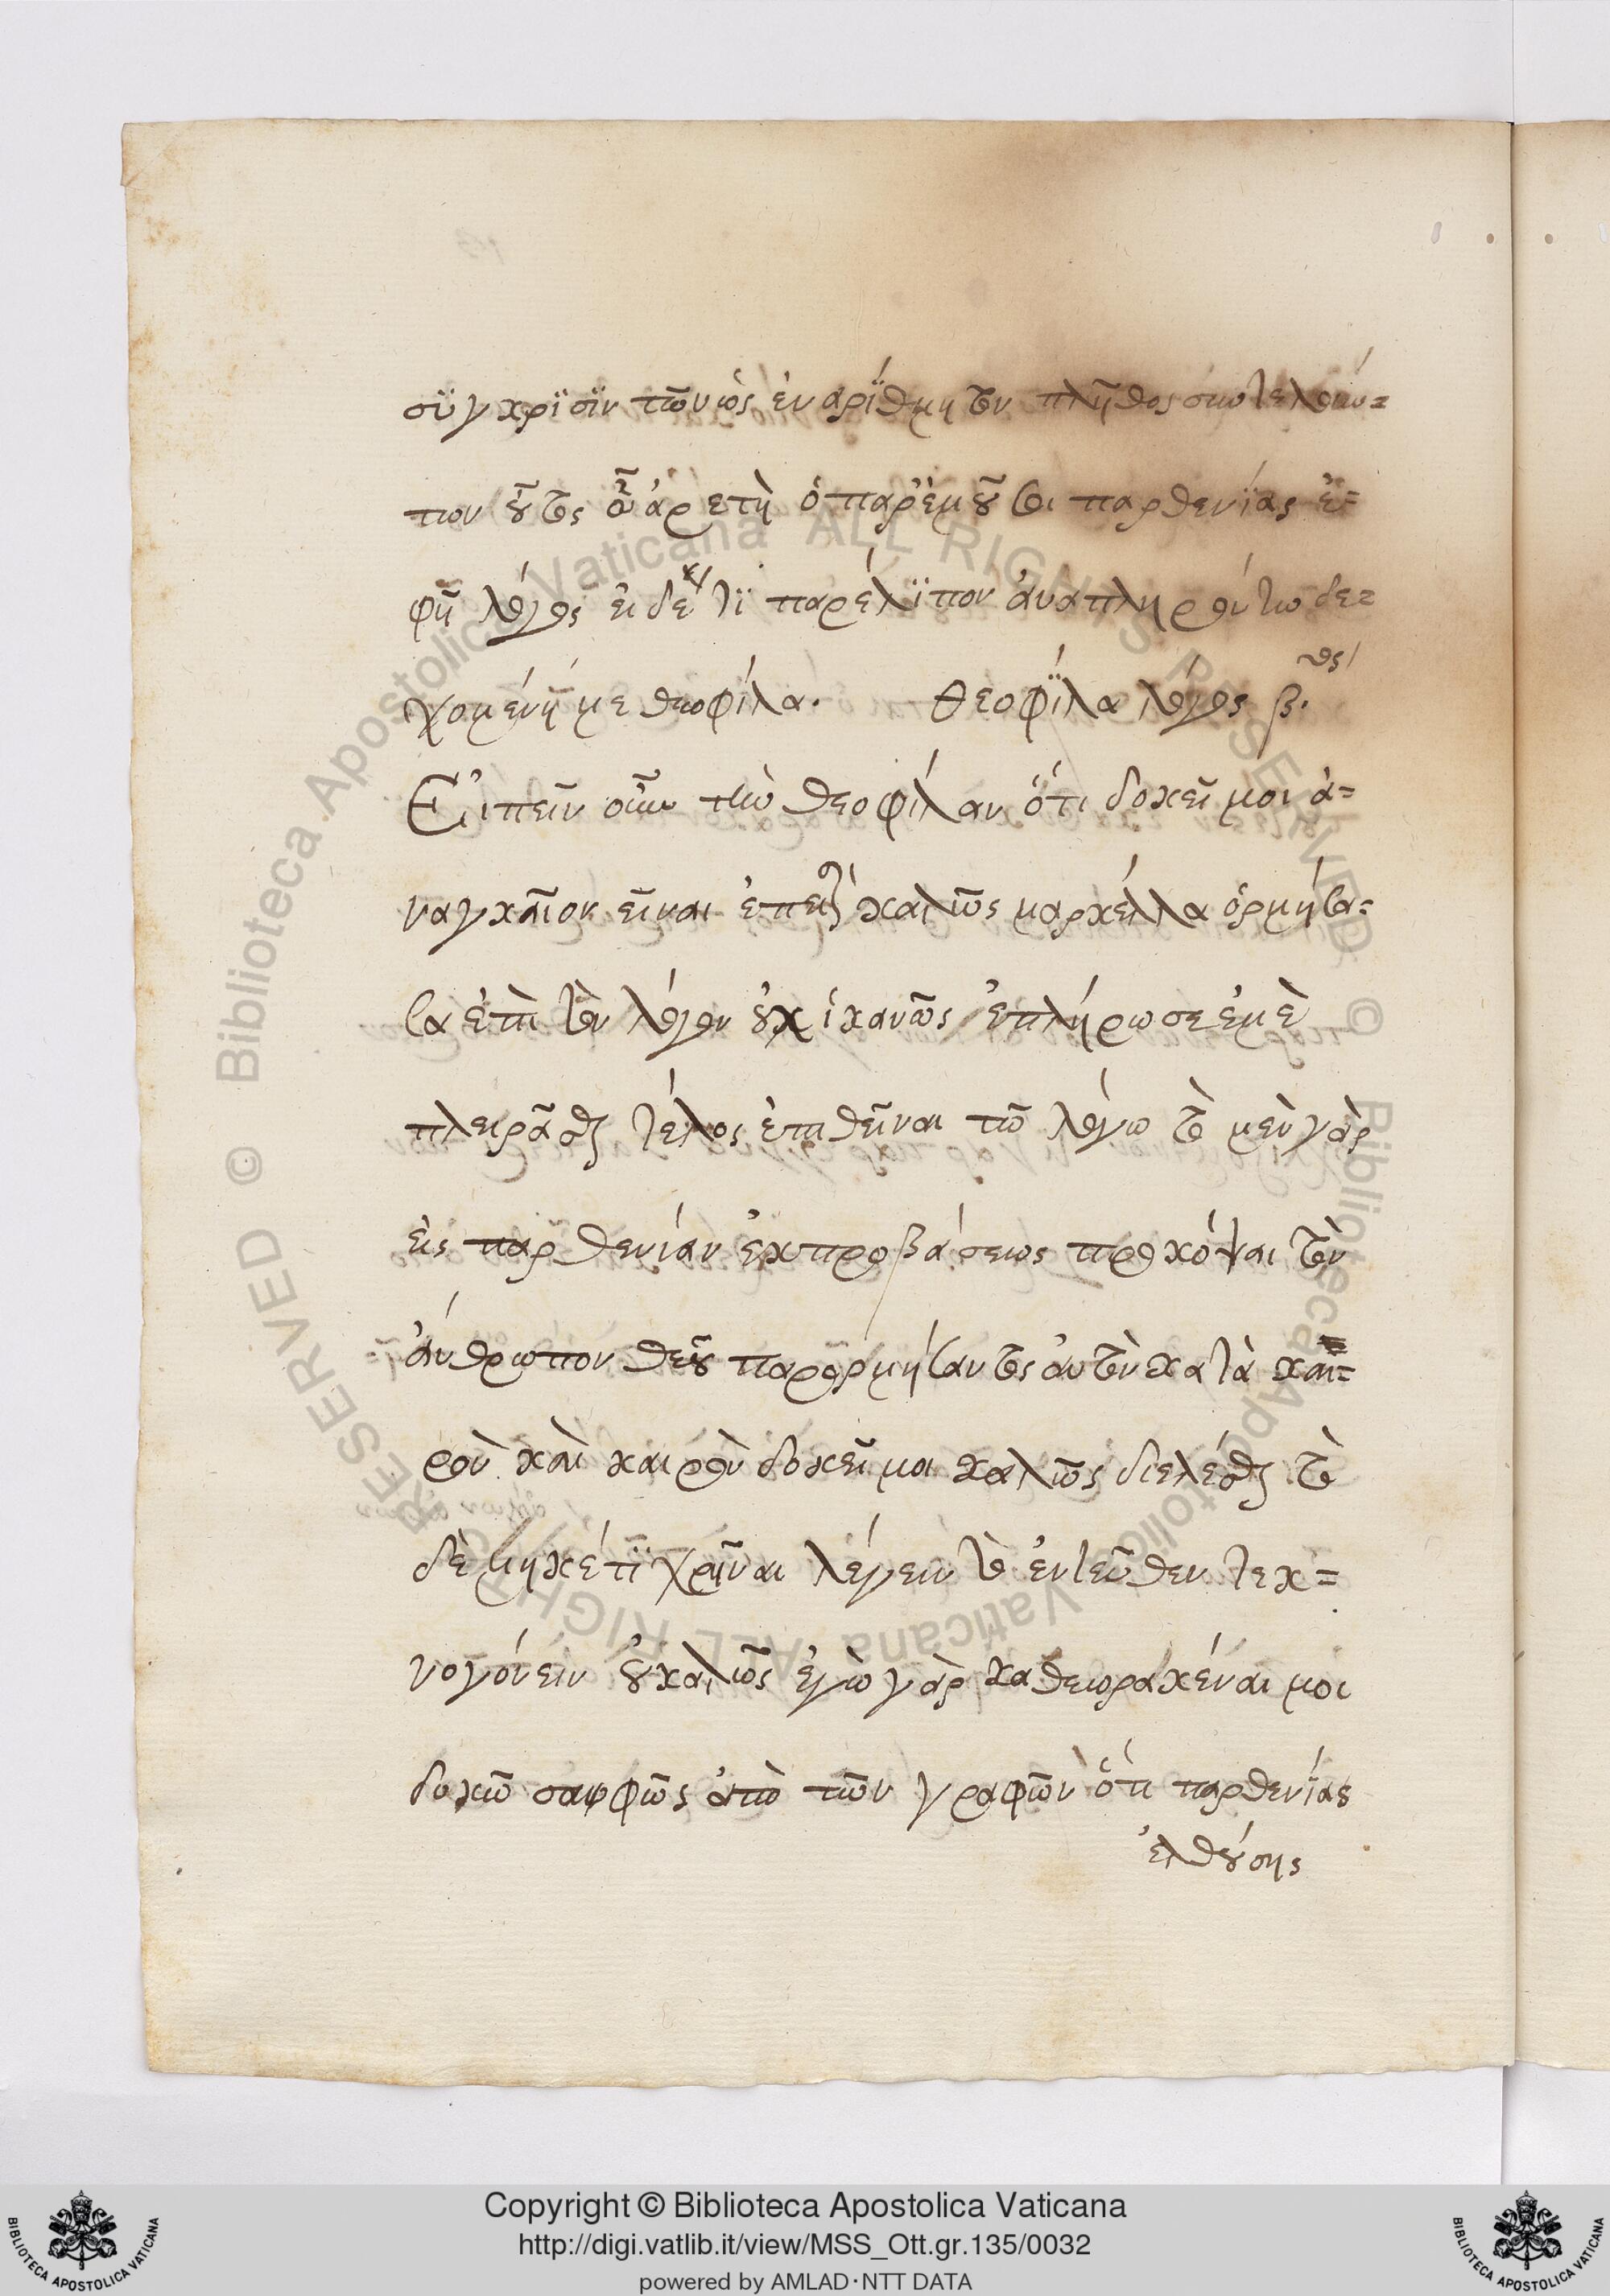 σϋγκρϊσϊν τῶν ὡς ἐν ἀρΐθμητον πλῆθος συντελούν=
των οὗτος ὦ ἀρετὴ ὁ παρ' ἐμοῦ σοι παρθενίας ἐ=
φῆ λόγος εἰ δέ τϊ παρέλϊπον ἀναπληρούτω δε=
χομένη με θεοφίλα. Θεοφΐλα λόγος β.ος
Εἰπεῖν οὖν τὴν θεοφίλαν ὅτι δοκεῖ μοι ἀ=
ναγκαῖον εἶναι ἐπειδὴ καλῶς μαρκέλλα ὁρμήσα=
σα ἐπὶ τὸν λόγον οὐχ ἱκανῶς ἐπλήρωσε ἐμὲ
πλειρᾶσθαι τέλος ἐπιθεῖναι τῶ λόγω τὸ μὲν γὰρ
εἰς παρθενίαν ἐκ προβάσεως προκόψαι τὸν
ἄνθρωπον θεοῦ παρορμήσαντος αὐτὸν κατὰ και=
ρὸν καὶ καιρὸν δοκεῖ μοι καλῶς διελέσθαι τὸ
δὲ μηκέτϊ χρῆναι λέγειν τὸ ἐντεῦθεν τεκ=
νογόνειν οὐ καλῶς ἐγὼ γὰρ καθεωρακέναι μοι
δοκῶ σαφφῶς ἀπὸ τῶν γραφῶν ὅτι παρθενίας
ἐλθούσης
Copyright © Biblioteca Apostolica Vaticana
http://digi.vatlib.it/view/MSS_Ott.gr.135/0032
powered by AMLAD·NTT DATA